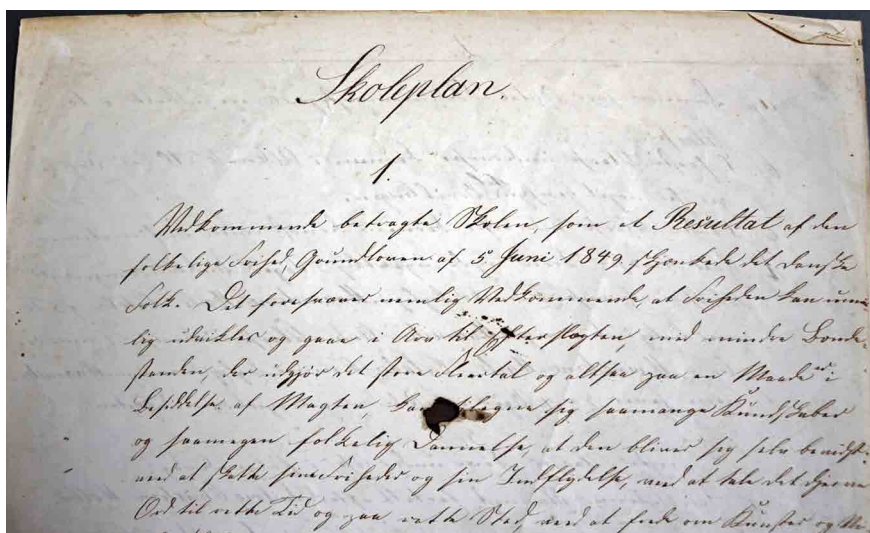 Skoleplan.
1.
Vedkommende betragte Skolen, som et Resultat af den
folkelige Frihed, Grundloven af 5 Juni 1849 skjænkede det danske
Folk. Det foresvæver nemlig Vedkommende, at Friheden kan umu-
lig udvikles og gaae i Arv til Efterslægten, med mindre Bonde-
standen, der udgjør det store Fleertal og altsaa paa en Maade er i
Besiddelse af Magten, kan tilegne sig saamange Kundskaber
og saamegen folkelig Dannelse, at den bliver sig selv bevidst
ved at skatte sine Friheder og sin Indflydelse, ved at tale det djerve
Ord til rette Tid og paa rette Sted, ved at frede om Kunster og Vi-